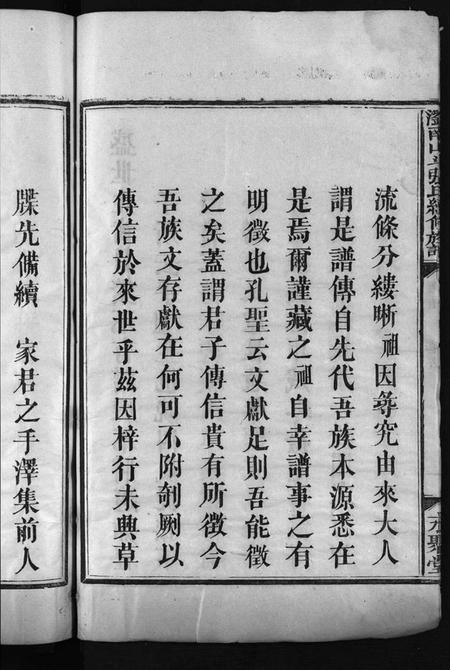 流條分縷晰祖因尋究由來大人
謂是譜傳自先代吾族本源悉在
是焉爾謹藏之祖自幸譜事之有
明徵也孔聖云文獻足則吾能徵
之矣蓋謂君子傳信貴有所徵今
吾族文存獻在何可不附剞劂以
傳信於來世乎茲因梓行未興草
牒先備續 家君之手澤集前人
永聚堂